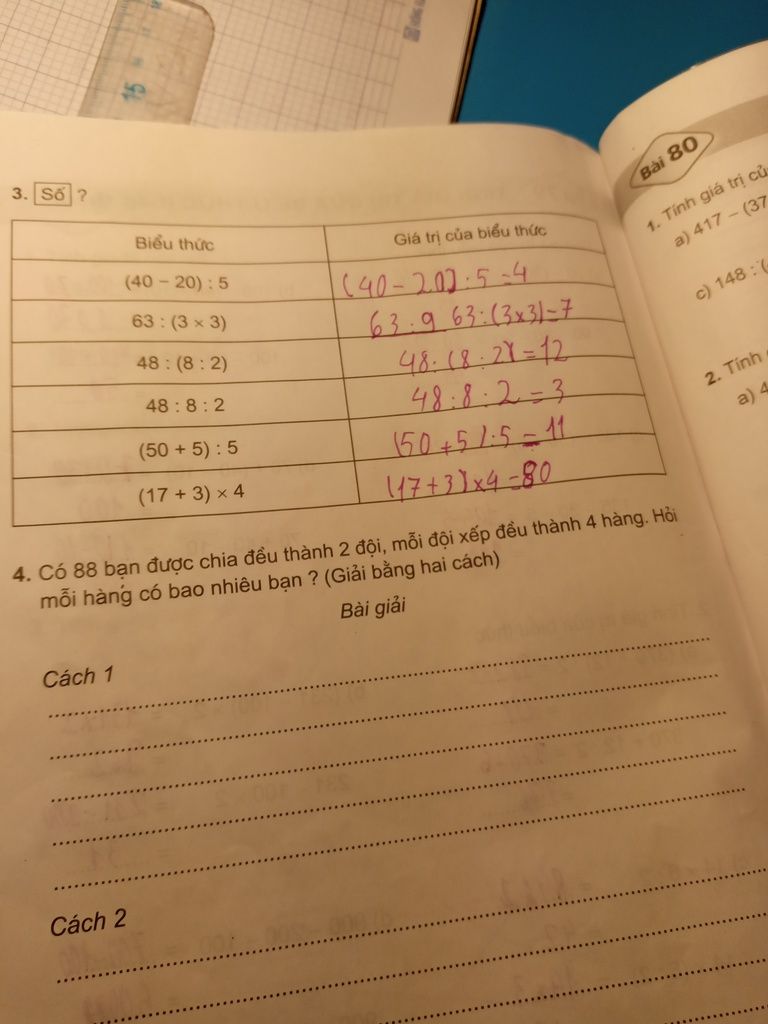 15
Bài 80
3. Số ?
Biểu thức Giá trị của biểu thức
(40 − 20) : 5 (40 − 20) : 5 = 4
63 : (3 × 3) 63 : 9 63 : (3×3) = 7
48 : (8 : 2) 48 : (8 : 2) = 12
48 : 8 : 2 48 : 8 : 2 = 3
(50 + 5) : 5 (50 + 5) : 5 = 11
(17 + 3) × 4 (17 + 3) × 4 = 80
4. Có 88 bạn được chia đều thành 2 đội, mỗi đội xếp đều thành 4 hàng. Hỏi
mỗi hàng có bao nhiêu bạn ? (Giải bằng hai cách)
Bài giải
Cách 1
Cách 2
1. Tính giá trị củ
a) 417 − (37
c) 148 : (
2. Tính
a) 4